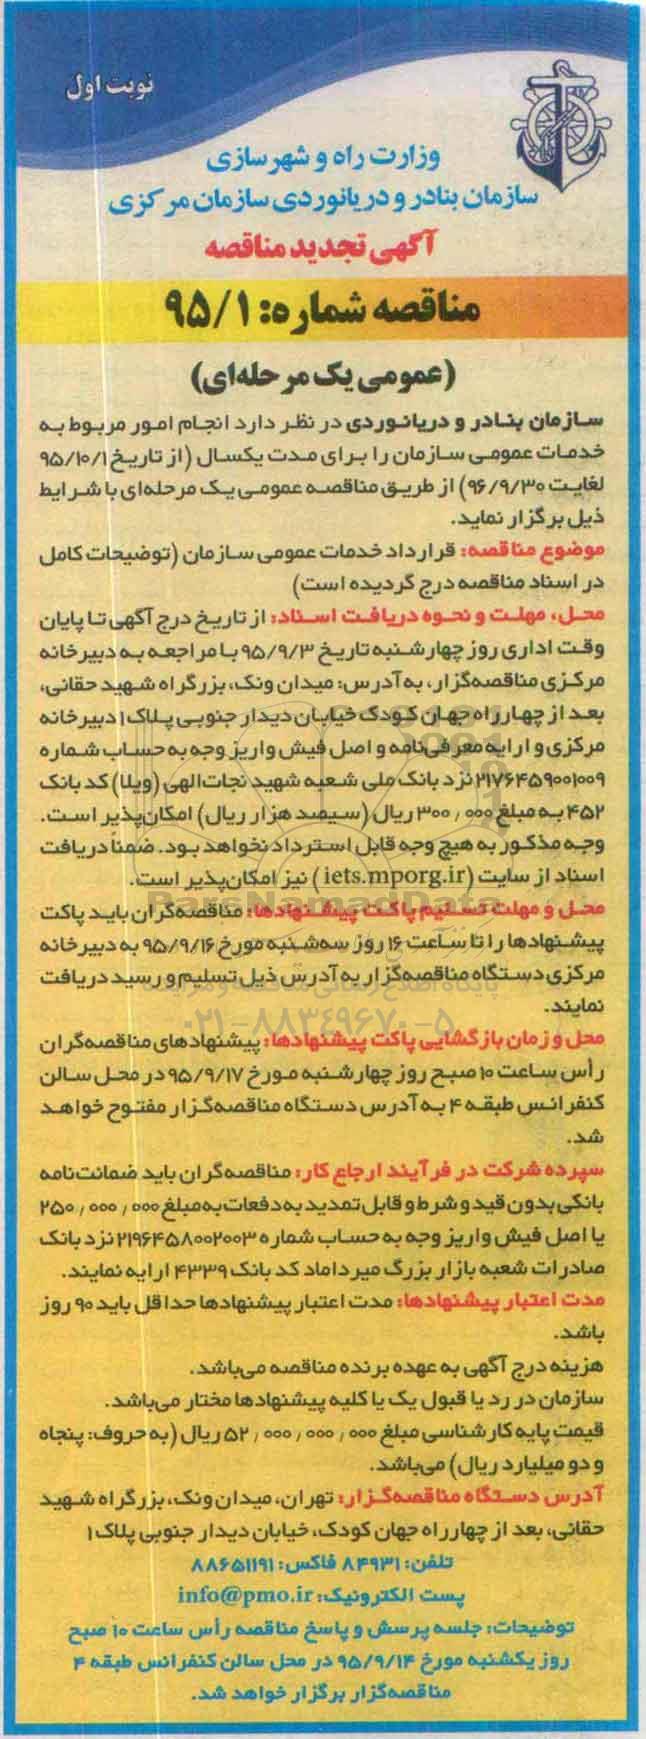 نوبت اول
وزارت راه و شهرسازی
سازمان بنادر و دریانوردی سازمان مرکزی
آگهی تجدید مناقصه
مناقصه شماره: ۹۵/۱
(عمومی یک مرحله‌ای)
سازمان بنادر و دریانوردی در نظر دارد انجام امور مربوط به
خدمات عمومی سازمان را برای مدت یکسال (از تاریخ ۹۵/۱۰/۱
لغایت ۹۶/۹/۳۰) از طریق مناقصه عمومی یک مرحله‌ای با شرایط
ذیل برگزار نماید.
موضوع مناقصه: قرارداد خدمات عمومی سازمان (توضیحات کامل
در اسناد مناقصه درج گردیده است)
محل، مهلت و نحوه دریافت اسناد: از تاریخ درج آگهی تا پایان
وقت اداری روز چهارشنبه تاریخ ۹۵/۹/۳ با مراجعه به دبیرخانه
مرکزی مناقصه‌گزار، به آدرس: میدان ونک، بزرگراه شهید حقانی،
بعد از چهارراه جهان کودک خیابان دیدار جنوبی پلاک ۱ دبیرخانه
مرکزی و ارایه معرفی‌نامه و اصل فیش واریز وجه به حساب شماره
۲۱۷۶۴۵۹۰۰۱۰۰۹ نزد بانک ملی شعبه شهید نجات‌الهی (ویلا) کد بانک
۴۵۲ به مبلغ ۳۰۰٫۰۰۰ ریال (سیصد هزار ریال) امکان‌پذیر است.
وجه مذکور به هیچ وجه قابل استرداد نخواهد بود. ضمناً دریافت
اسناد از سایت (iets.mporg.ir) نیز امکان‌پذیر است.
محل و مهلت تسلیم پاکت پیشنهادها: مناقصه‌گران باید پاکت
پیشنهادها را تا ساعت ۱۶ روز سه‌شنبه مورخ ۹۵/۹/۱۶ به دبیرخانه
مرکزی دستگاه مناقصه‌گزار به آدرس ذیل تسلیم و رسید دریافت
نمایند.
محل و زمان بازگشایی پاکت پیشنهادها: پیشنهادهای مناقصه‌گران
رأس ساعت ۱۰ صبح روز چهارشنبه مورخ ۹۵/۹/۱۷ در محل سالن
کنفرانس طبقه ۴ به آدرس دستگاه مناقصه‌گزار مفتوح خواهد
شد.
سپرده شرکت در فرآیند ارجاع کار: مناقصه‌گران باید ضمانت‌نامه
بانکی بدون قید و شرط و قابل تمدید به دفعات به مبلغ ۲۵۰٫۰۰۰٫۰۰۰
یا اصل فیش واریز وجه به حساب شماره ۲۱۹۶۴۵۸۰۰۲۰۰۳ نزد بانک
صادرات شعبه بازار بزرگ میرداماد کد بانک ۴۳۳۹ ارایه نمایند.
مدت اعتبار پیشنهادها: مدت اعتبار پیشنهادها حداقل باید ۹۰ روز
باشد.
هزینه درج آگهی به عهده برنده مناقصه می‌باشد.
سازمان در رد یا قبول یک یا کلیه پیشنهادها مختار می‌باشد.
قیمت پایه کارشناسی مبلغ ۵۲٫۰۰۰٫۰۰۰٫۰۰۰ ریال (به حروف: پنجاه
و دو میلیارد ریال) می‌باشد.
آدرس دستگاه مناقصه‌گزار: تهران، میدان ونک، بزرگراه شهید
حقانی، بعد از چهارراه جهان کودک، خیابان دیدار جنوبی پلاک ۱
تلفن: ۸۴۹۳۱ فاکس: ۸۸۶۵۱۱۹۱
پست الکترونیک: info@pmo.ir
توضیحات: جلسه پرسش و پاسخ مناقصه رأس ساعت ۱۰ صبح
روز یکشنبه مورخ ۹۵/۹/۱۴ در محل سالن کنفرانس طبقه ۴
مناقصه‌گزار برگزار خواهد شد.
ParsNamadData
پایگاه اطلاع رسانی مناقصه و مزایده
۰۲۱-۸۸۳۴۹۶۷۰-۵